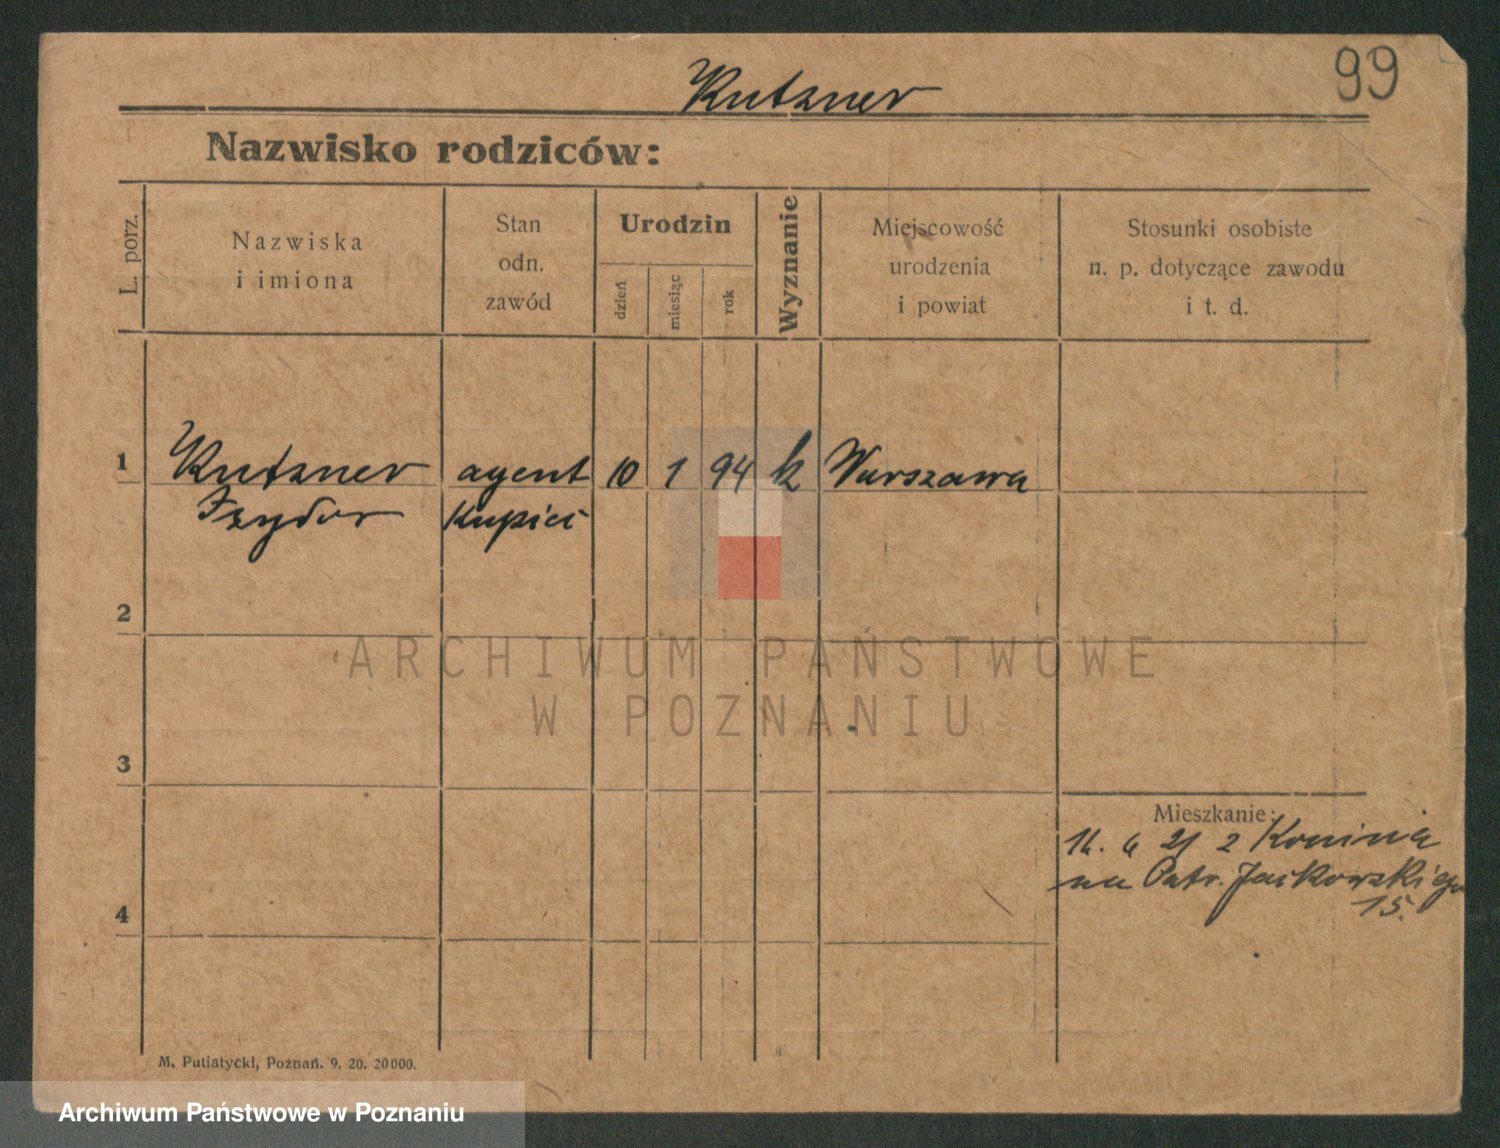 Kutzner
99
Nazwisko rodziców:
L. porz.
Nazwiska
i imiona
Stan
odn.
zawód
Urodzin
dzień
miesiąc
rok
Wyznanie
Miejscowość
urodzenia
i powiat
Stosunki osobiste
n. p. dotyczące zawodu
i t. d.
1 Kutzner agent 10 1 94 k Warszawa
Izydor Kupiec
2
3
4
Mieszkanie:
21 z Konina
na Patr. Jackowskiego
15.
M. Putiatycki, Poznań. 9. 20. 20000.
ARCHIWUM PAŃSTWOWE
W POZNANIU
Archiwum Państwowe w Poznaniu